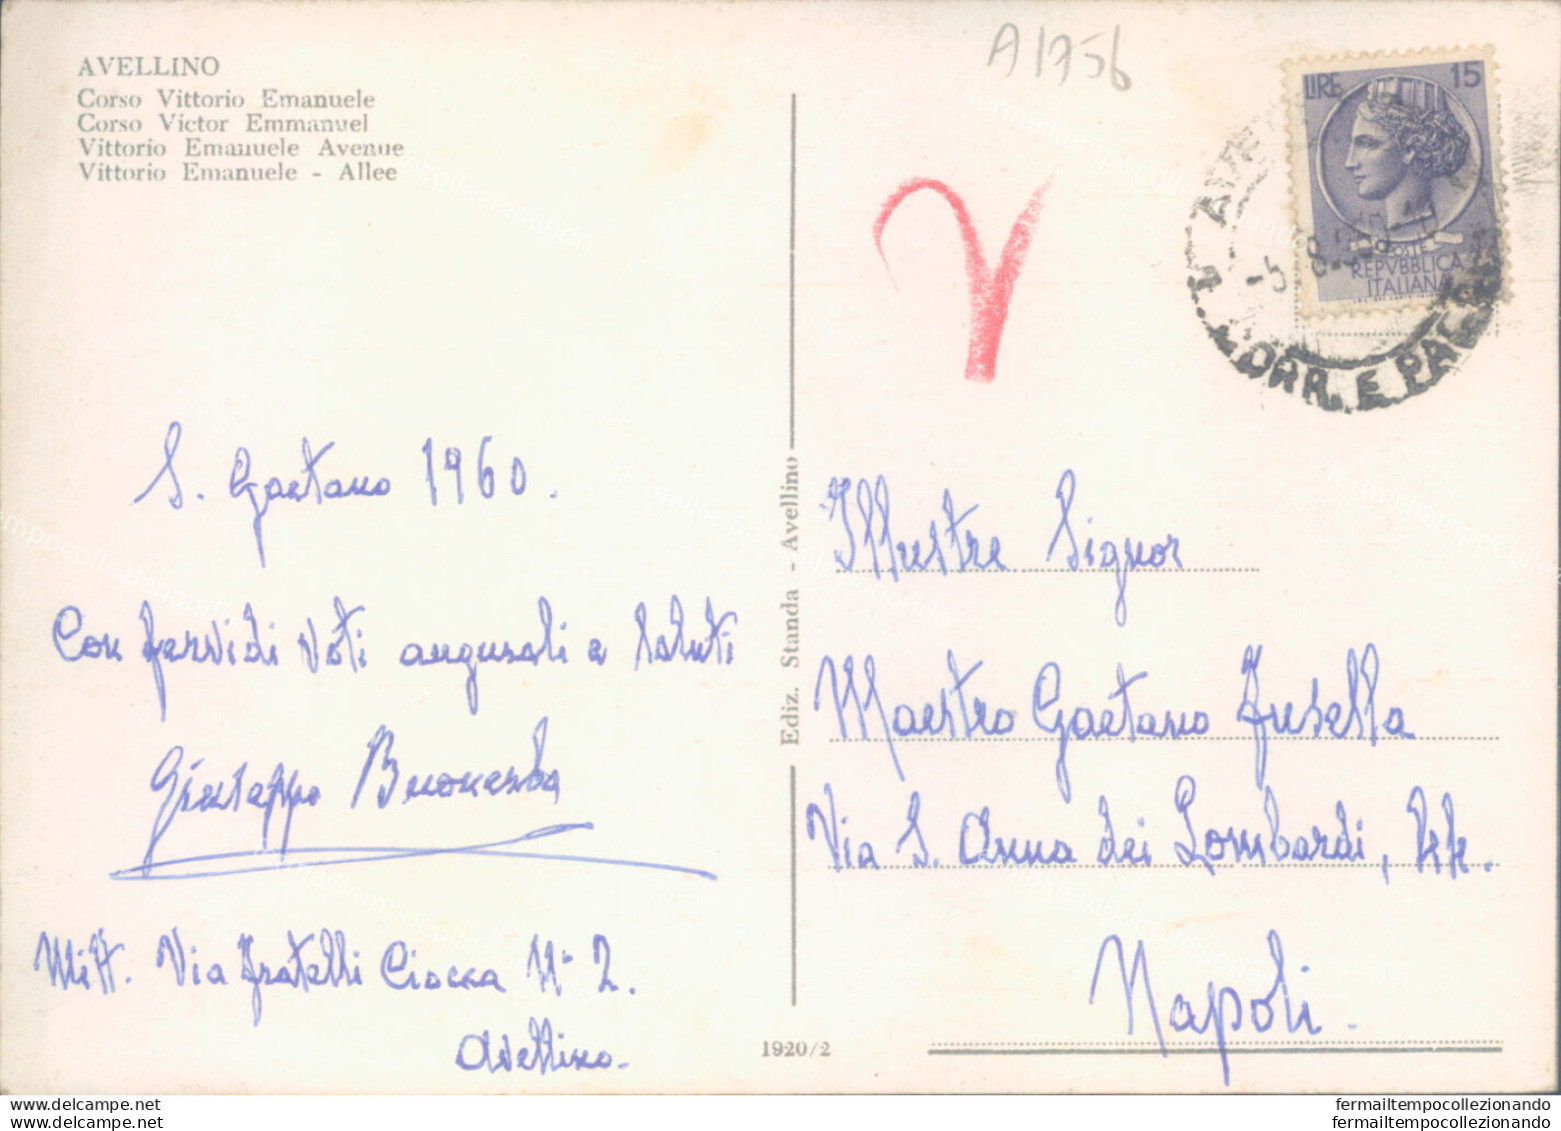 AVELLINO
Corso Vittorio Emanuele
Corso Victor Emmanuel
Vittorio Emanuele Avenue
Vittorio Emanuele - Allee
A1756
LIRE 15
POSTE
REPVBBLICA
ITALIANA
CORR. E PAC
S. Gaetano 1960.
Con fervidi voti augurali e saluti
Giuseppe
Mitt. Via Fratelli Ciocca N° 2.
Avellino.
Ediz. Standa - Avellino
1920/2
Illustre Signor
Maestro Gaetano Fusella
Via S. Anna dei Lombardi, 44.
Napoli.
www.delcampe.net
www.delcampe.net
fermailtempocollezionando
fermailtempocollezionando